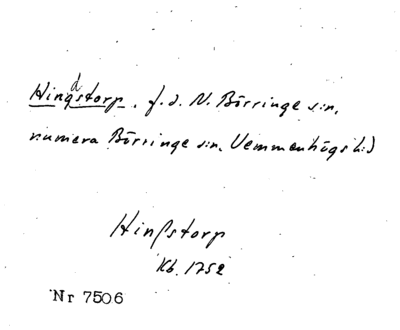 Hingdstorp, f.d. N. Börringe s:n,
numera Börringe s:n, Vemmenhögs h:d
Hinßstorp
Kb. 1752
Nr 7506